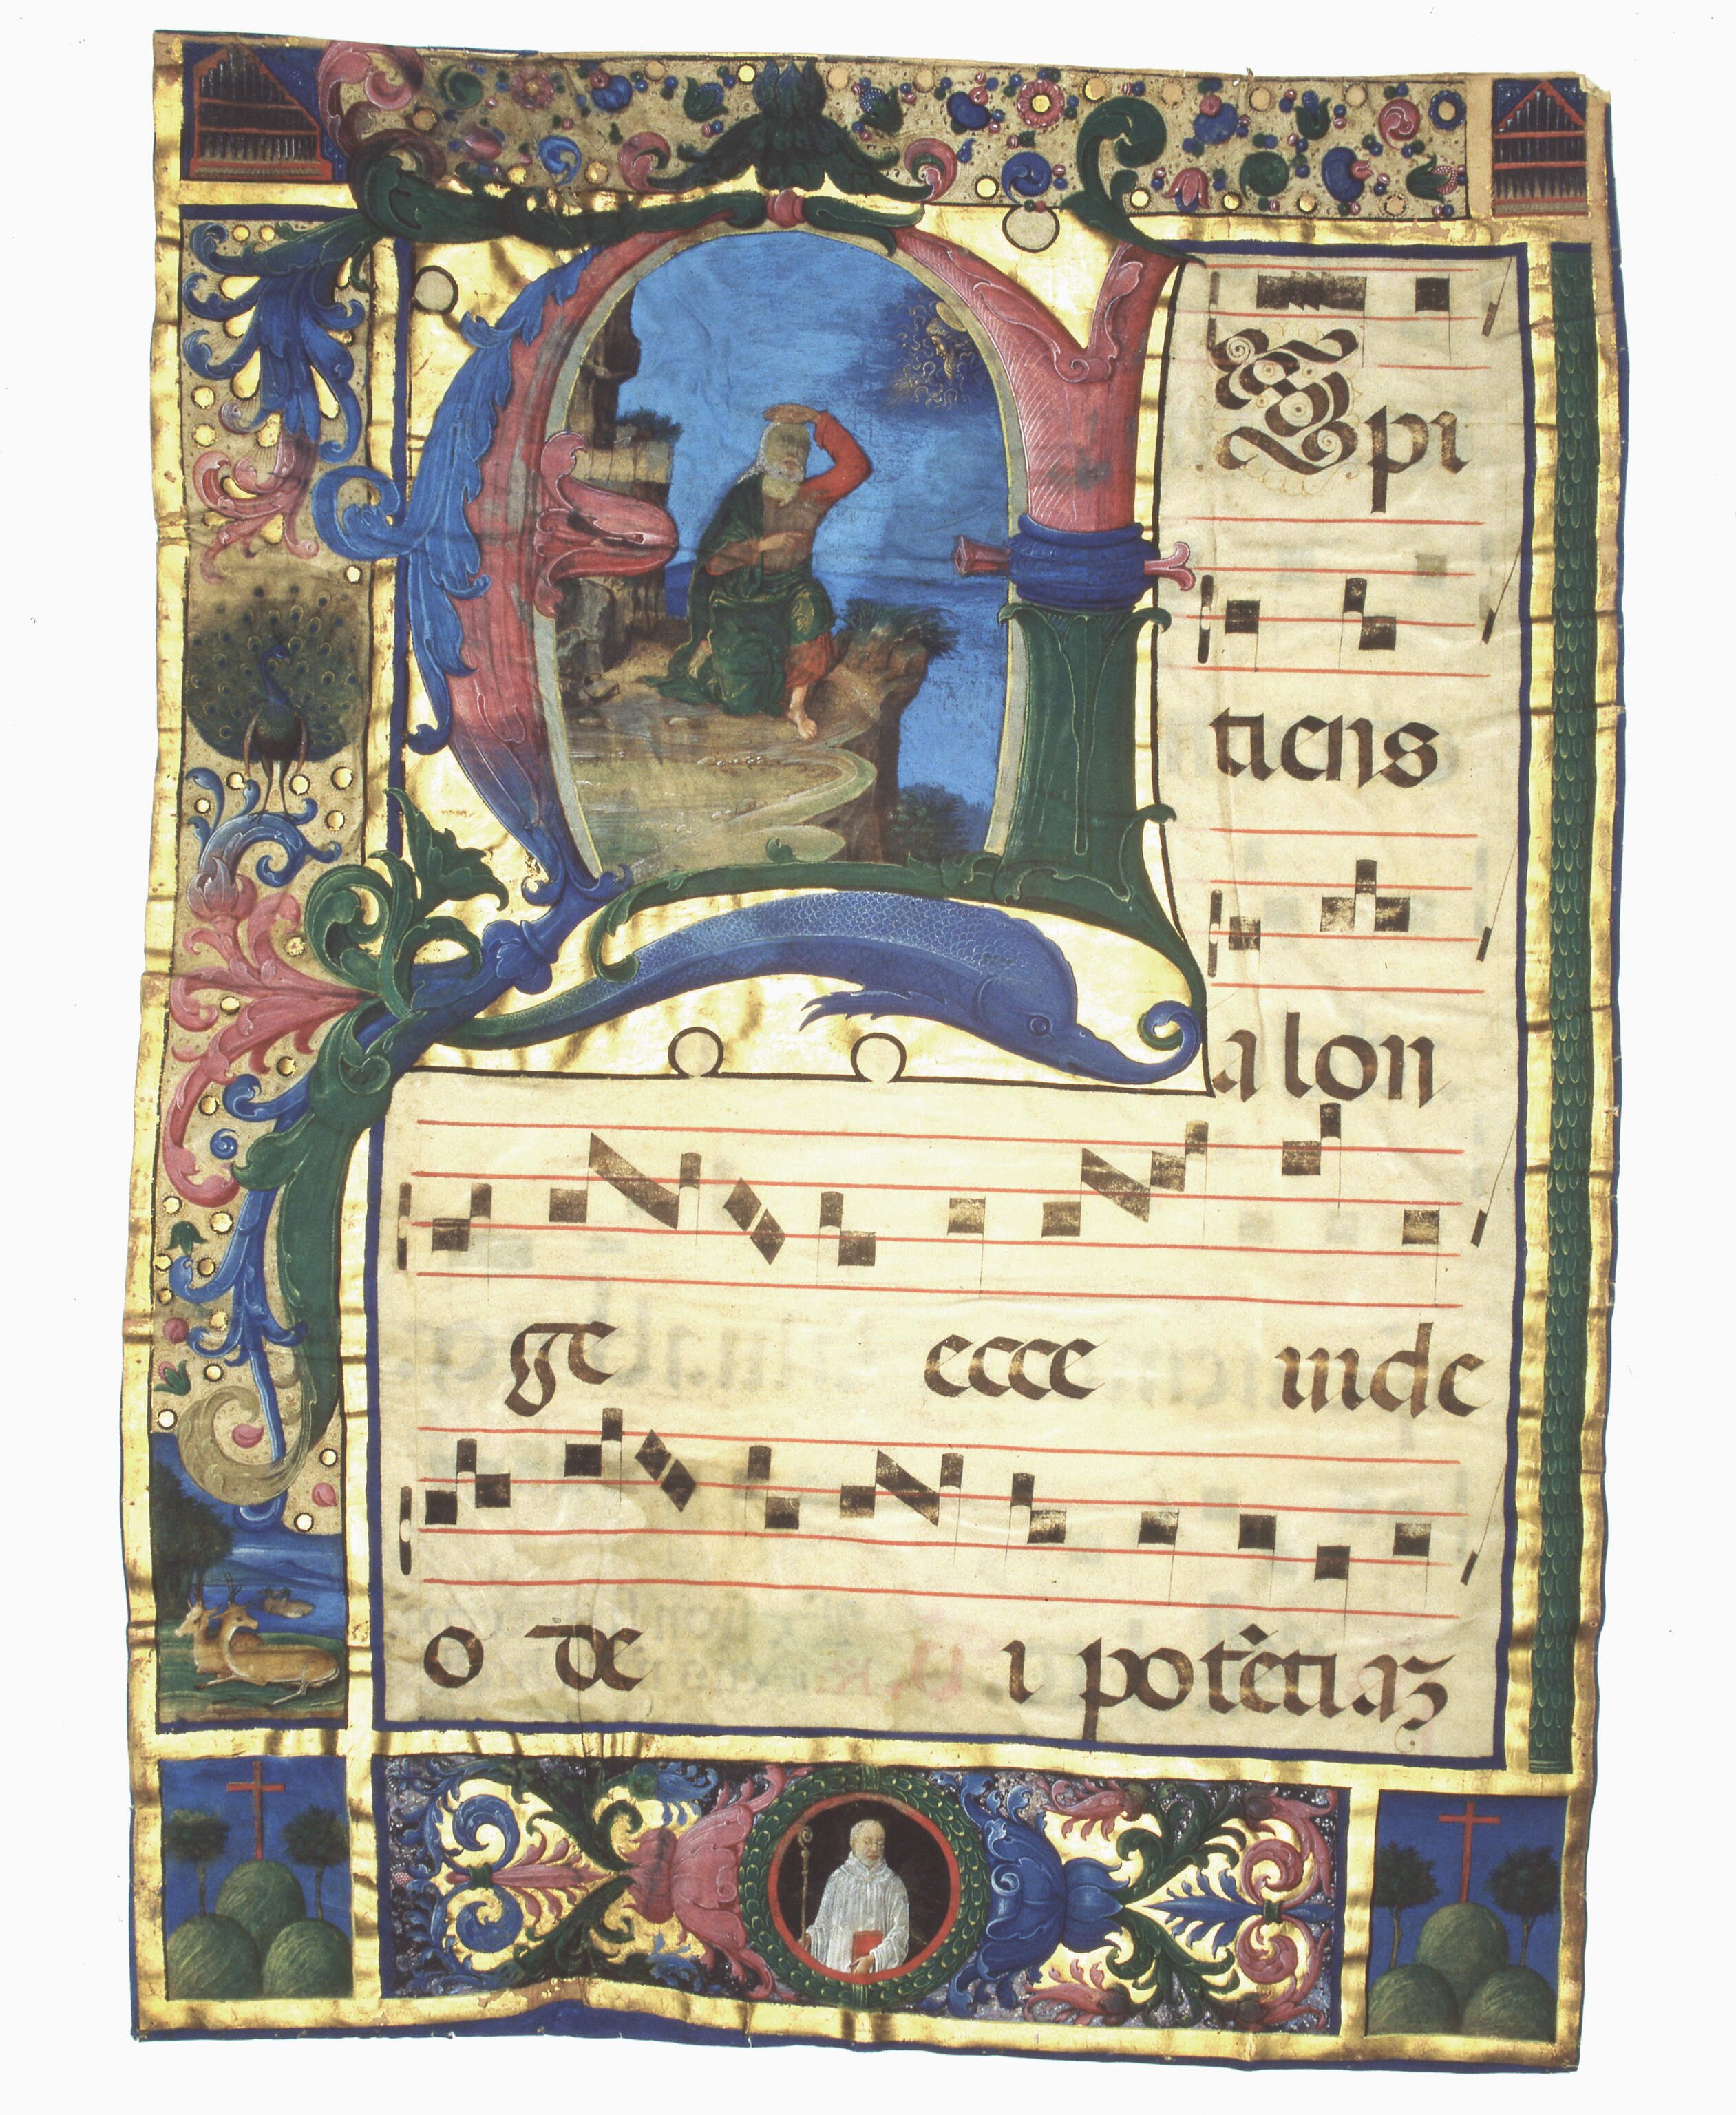 ASpi
tiens
a lon
ge ecce uide
o de i potētiaʒ